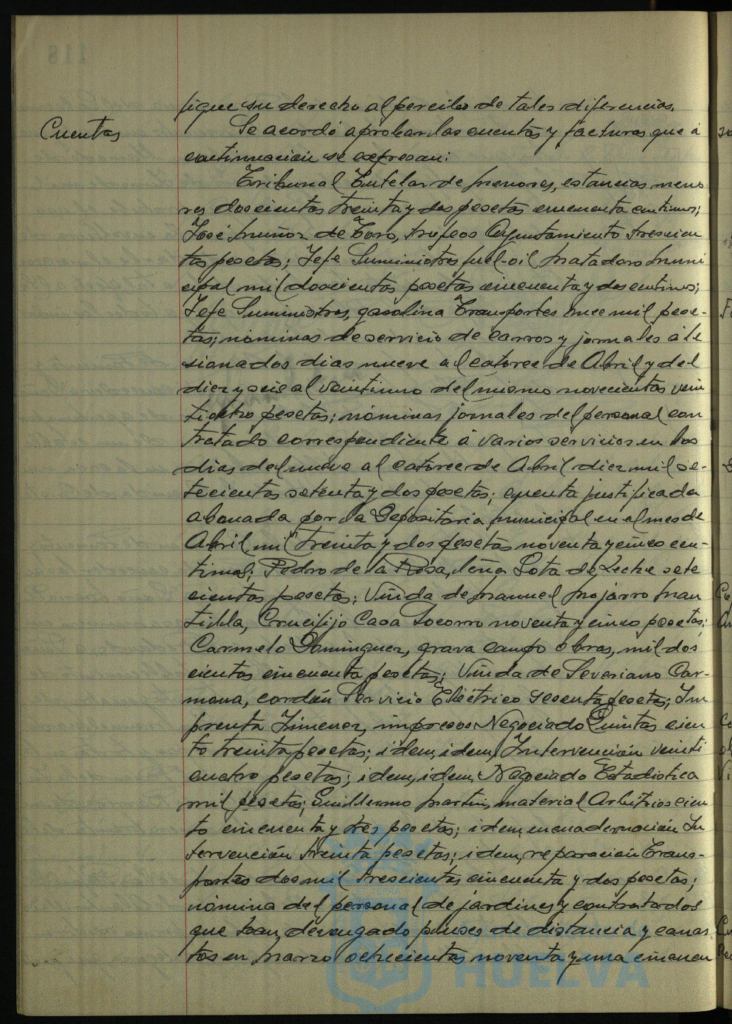 fique su derecho al percibo de tales diferencias.
Cuentas
Se acordó aprobar las cuentas y facturas que á
continuación se expresan:
Tribunal Tutelar de menores, estancias meno
res doscientas treinta y dos pesetas cincuenta centimos;
José Muñoz de Toro, trofeos Ayuntamiento trescien
tas pesetas; Jefe Suministros fuel-oil Matadero Muni
cipal mil doscientas pesetas cincuenta y dos centimos;
Jefe Suministros, gasolina Transportes once mil pese-
tas; nóminas de servicio de carros y jornales á le
sionados dias nueve al catorce de Abril y del
diez y seis al veintiuno del mismo novecientas vein
ticatro pesetas; nóminas jornales del personal con
tratado correspondiente á varios servicios en los
dias del nueve al catorce de Abril diez mil se-
tecientas setenta y dos pesetas; cuenta justificada
abonada por la Depositaria municipal en el mes de
Abril mil treinta y dos pesetas noventa y cinco cen-
timos; Pedro de la Rosa, leña Gota de Leche sete
cientas pesetas; Viuda de Manuel Mojarro Man
tilla, Crucifijo Casa Socorro noventa y cinco pesetas;
Carmelo Dominguez, grava campo obras, mil dos
cientas cincuenta pesetas; Viuda de Severiano Car-
mona, cordón Servicio Eléctrico sesenta pesetas; Im
prenta Jimenez, impresos Negociado Quintas cien
to treinta pesetas; idem, idem, Intervención veinti
cuatro pesetas; idem, idem, Negociado Estadistica
mil pesetas; Guillermo Martin, material Arbitrios cien
to cincuenta y tres pesetas; idem, encuadernación In
tervención treinta pesetas; idem, reparación Trans-
portes dos mil trescientas cincuenta y dos pesetas;
nómina del personal de jardines y contratados
que han devengado pluses de distancia y canas
tos en Marzo ochocientas noventa y una cincuen
HUELVA